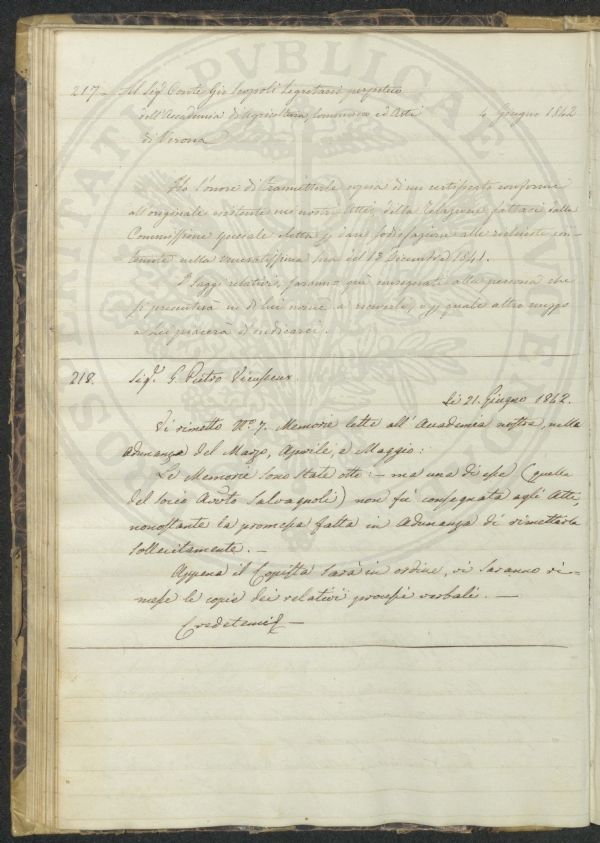 217 - Al Sigr. Conte Gio Scopoli Segretario perpetuo
dell'Accademia di Agricoltura, Commercio ed Arti 4 Giugno 1842
di Verona
Ho l'onore di trasmetterle copia di un certificato conforme
all'originale esistente nei nostri Atti, della Relazione fattaci dalla
Commissione speciale eletta p dare sodisfazione alle richieste con-
tenute nella veneratissima Sua del 13 Dicembre 1841.
I Saggi relativi, saranno poi consegnati alla persona che
si presenterà in di lei nome a riceverli, o p quale altro mezzo
a Lei piacerà d'indicarci.
218. Sigr. G. Pietro Vieusseux.
li 21. Giugno 1842.
Vi rimetto No. 7. Memorie lette all'Accademia nostra, nelle
Adunanze del Marzo, Aprile, e Maggio:
Le Memorie sono state otto: - ma una di esse (quella
del socio Avv.to Salvagnoli) non fu consegnata agli Atti,
nonostante la promessa fatta in Adunanza di rimetterla
sollecitamente. -
Appena il Copista sarà in ordine, vi saranno ri-
messe le copie dei relativi processi verbali. -
Credetemi -
PROSPERITATI PVBLICAE AVGENDAE